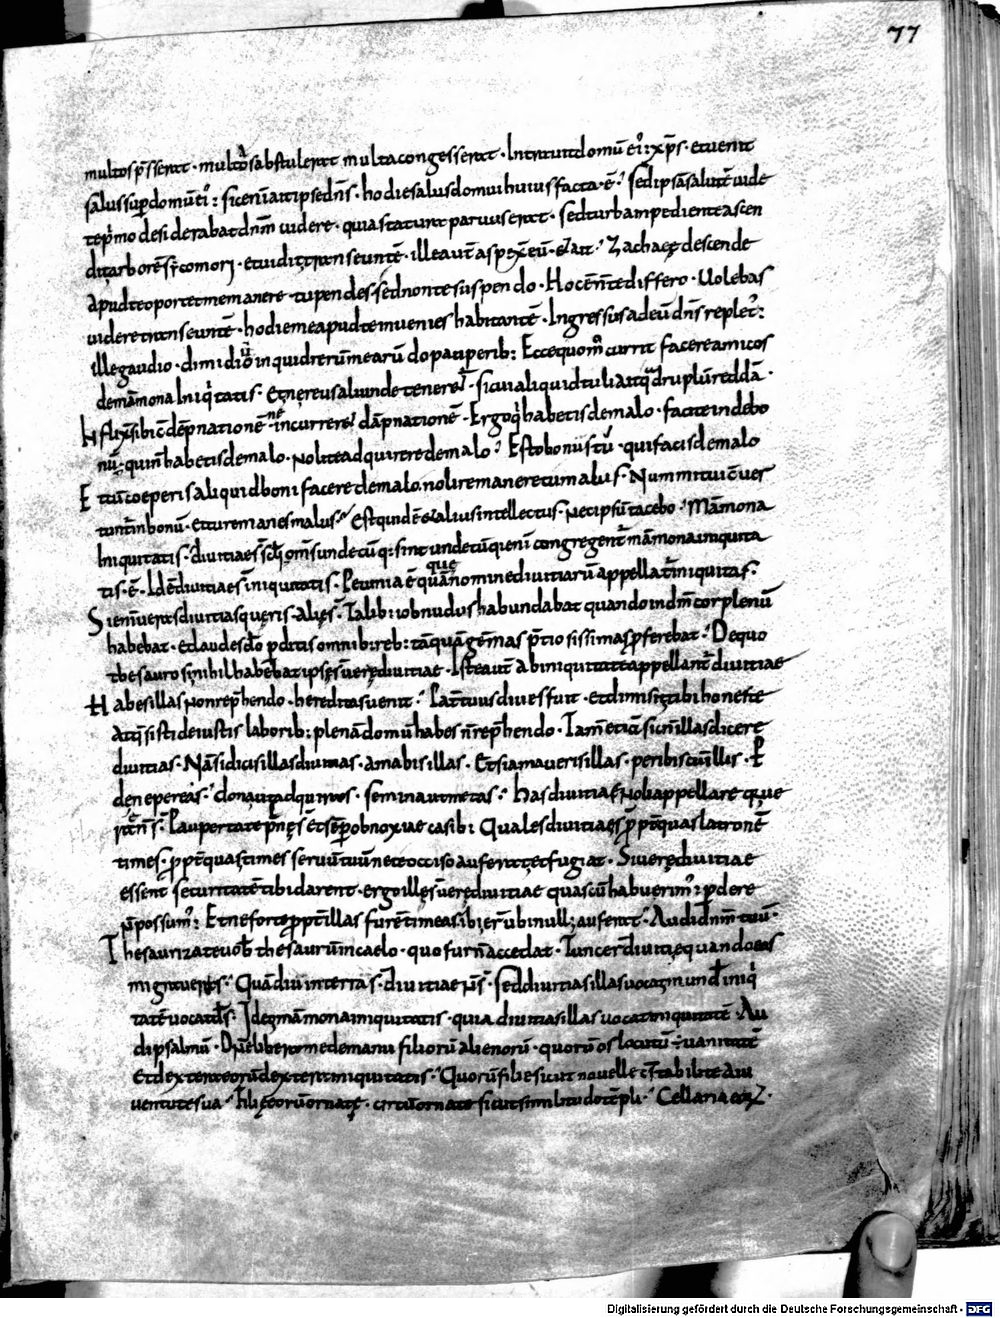 77
multos p̄sserat · multos abstulerat multa congesserat · Intrauit domū eiꝰ xp̄s · et uenit
salus sup̄ domū eiꝰ : sic enī ait ipse dn̄s · hodie salus domui huius facta ē · sed ipsā salutē uide
te pͥmo desiderabat dnm̄ uidere · quia statura paruus erat · sed turba impediente ascen
dit arborē sycomori · et uidit transeuntē · ille aut̄ aspexit eū · & ait · Zachaeę descende
apud te oportet me manere · tu pendes sed non te suspendo · Hoc ē n̄ te differo · Uolebas
uidere transeuntē · hodie me apud te inuenies habitantē · Ingressus ad eū dn̄s repletꝰ :
ille gaudio · dimidiū inquid rerū mearū do pauperib: Ecce quom̊ currit facere amicos
de māmona Iniqͥtatis · Et ne reus aliunde teneretͬ · si cui aliquid tuli atqͣdruplū reddā ·
Inflixit sibi dāpnationē ne incurreret dāpnationē · Ergo qͥ habetis de malo · facite inde bo
nū · qui n̄ habetis de malo · nolite adquirere de malo · Esto bonus tu · qui facis de malo
Et cū coeperis aliquid boni facere de malo · noli remanere tu malus · Nummi tui cūuer
tunt̄ in bonū · et tu remanes malus · Est quidē & alius intellectus · nec ipsū tacebo · Māmona
Iniquitatis · diuitiae s̄ scl̄i om̄s undecūq: sint undecūq: enī congregent̄ māmona iniquita
tis · ē · Id ē diuitiae s̄ iniquitatis · Pecunia ē quā nomine diuitiarū appellat iniquitas · que
Si enī ueras diuitias queris · alię s̄ · Talib: iob nudus habundabat quando in dm̄ cor plenū
habebat · et laudes do ꝑditis omnib: reb: tā quā gēmas p̄tiosissimas ꝓferebat · De quo
thesauro si nihil habebat ipsę s̄ uerę diuitiae · Istae aut̄ ab iniquitate appellant̄ diuitiae
Habes illas non rep̄hendo · hereditas uenit · Pater tuus diues fuit · Et dimisit tibi honeste
atqͥsisti de iustis laborib: plenā domū habes n̄ rep̄hendo · Tam̄ etiā sic n̄ illas dicere
diuitias · Nā si dicis illas diuitias · amabis illas · Et si amaueris illas · peribis cū illis · P
de ne pereas · dona ut adquiras · semina ut metas · Has diuitias noli appellare que
uerę n̄ s̄ · Paupertate plenę s̄ et sēp̄ obnoxiae casib: Quales diuitiae s̄ ꝓpt̄ quas latronē
times · ꝓpt̄ quas times seruū tuū ne te occiso auferat et fugiat · Si uerę diuitiae
essent securitatē tibi darent · ergo illę s̄ uerę diuitiae quas cū habuerimꝰ ꝑdere
n̄ possumꝰ : Et ne forte ꝓpt̄ illas furē timeas · ibi er̄ ubi nullꝰ auferat · Audi dnm̄ tuū ·
Thesaurizate uob̄ thesaurū in caelo · quo fur n̄ accedat · Tunc er̄ diuitię quando eas
migraueris · Quādiu in terra s̄ · diuitiae n̄ s̄ · Sed diuitias illas uocat mundꝰ iniqͥ
tatē uocat ds̄ · Ideo māmona iniquitatis · quia diuitias illas uocat iniquitatē · Au
di psalmū · Dn̄e libera me de manu filiorū alienorū · quorū os locutū ÷ uanitatē
Et dextera eorū dextera iniquitatis · Quorū filii sicut nouellę cōstabilitę a iu
uentute sua · Filię eorū ornatę · circū ornate sicut similitudo tēpli · Cellaria eoꝝ ·
Digitalisierung gefördert durch die Deutsche Forschungsgemeinschaft - DFG